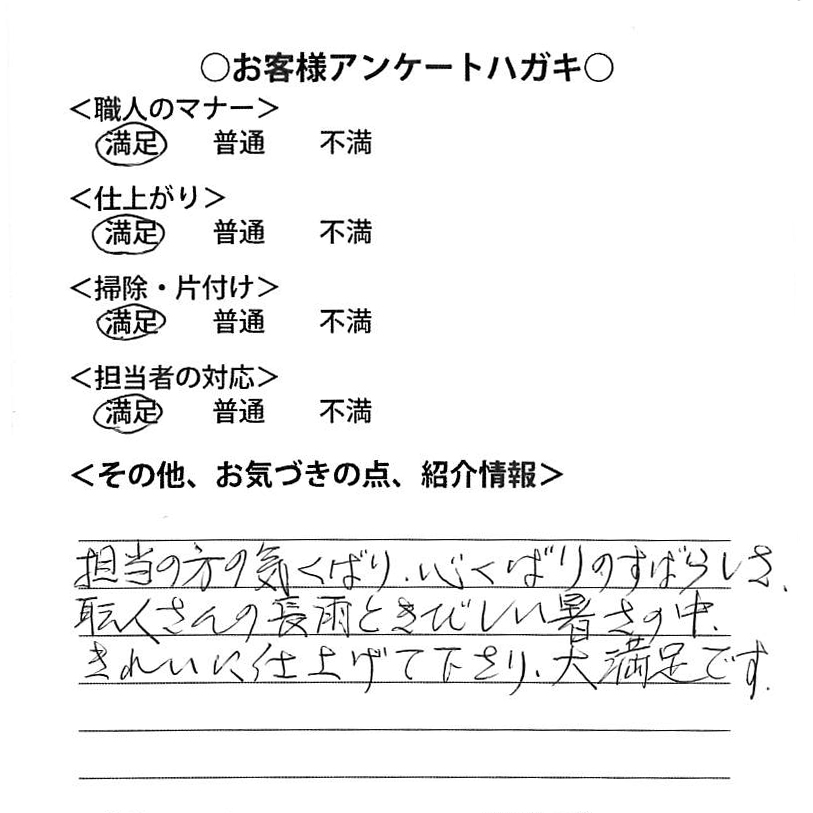 ○お客様アンケートハガキ○
＜職人のマナー＞
満足 普通 不満
＜仕上がり＞
満足 普通 不満
＜掃除・片付け＞
満足 普通 不満
＜担当者の対応＞
満足 普通 不満
＜その他、お気づきの点、紹介情報＞
担当の方の気くばり、心くばりのすばらしさ、
職人さんの長雨ときびしい暑さの中、
きれいに仕上げて下さり、大満足です。